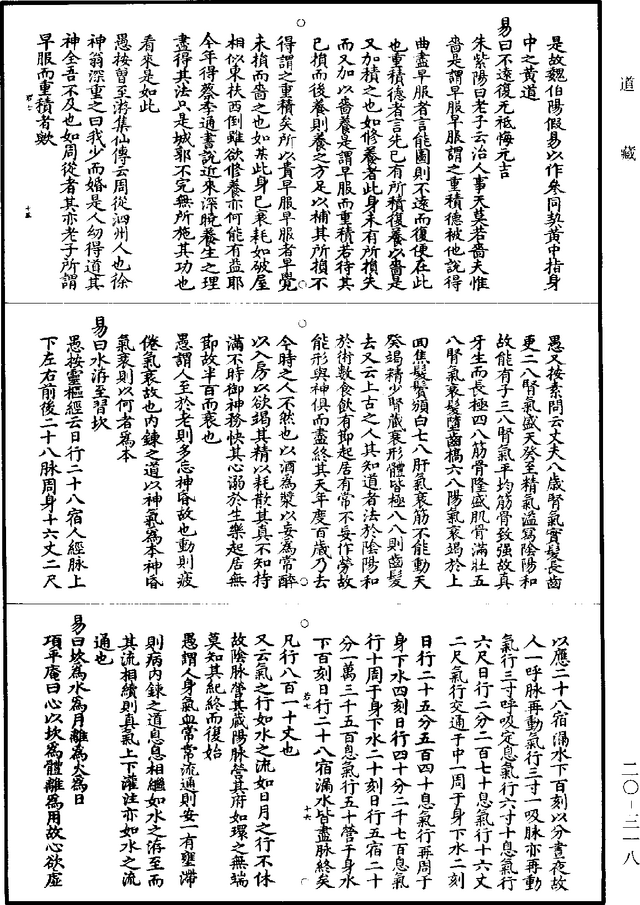 道藏
是故魏伯陽假易以作參同契黃中指身
中之黃道
易曰不遠復无祗悔元吉
朱紫陽曰老子云治人事天莫若嗇夫惟
嗇是謂早服早服謂之重積德被他說得
曲盡早服者言能圖則不遠而復便在此
也重積德者言先已有所積復養以嗇是
又加積之也如修養者此身未有所損失
而又加以嗇養是謂早服而重積若待其
已損而後養則養之方足以補其所損不
得謂之重積矣所以貴早服早服者早覺
未損而嗇之也如某此身已衰耗如破屋
相似東扶西倒雖欲修養亦何能有益耶
今年得蔡季通書說近來深曉養生之理
盡得其法只是城郭不完無所施其功也
看來是如此
愚按曾至游集仙傳云周從泗州人也徐
神翁深重之曰我少而婚是人幼得道其
神全吾不及也如周從者其亦老子所謂
早服而重積者歟
愚又按素問云丈夫八歲腎氣實髮長齒
更二八腎氣盛天癸至精氣溢寫陰陽和
故能有子三八腎氣平均筋骨致强故真
牙生而長極四八筋骨隆盛肌骨滿壯五
八腎氣衰髮墮齒槁六八陽氣衰竭於上
面焦髮鬢頒白七八肝氣衰筋不能動天
癸竭精少腎藏衰形體皆極八八則齒髮
去又云上古之人其知道者法於陰陽和
於術數食飲有節起居有常不妄作勞故
能形與神俱而盡終其天年度百歲乃去
今時之人不然也以酒為漿以妄為常醉
以入房以欲竭其精以耗散其真不知持
滿不時御神務快其心溺於生樂起居無
節故半百而衰也
愚謂人至於老則多忘神昏故也動則疲
倦氣衰故也內鍊之道以神氣為本神昏
氣衰則以何者為本
易曰水洊至習坎
愚按靈樞經云日行二十八宿人經脉上
下左右前後二十八脉周身十六丈二尺
以應二十八宿漏水下百刻以分晝夜故
人一呼脉再動氣行三寸一吸脉亦再動
氣行三寸呼吸定息氣行六寸十息氣行
六尺日行二分二百七十息氣行十六丈
二尺氣行交通于中一周于身下水二刻
日行二十五分五百四十息氣行再周于
身下水四刻日行四十分二千七百息氣
行十周于身下水二十刻日行五宿二十
分一萬三千五百息氣行五十營于身水
下百刻日行二十八宿漏水皆盡脉終矣
凡行八百一十丈也
又云氣之行如水之流如日月之行不休
故陰脉營其藏陽脉營其府如環之無端
莫知其紀終而復始
愚謂人身氣血常常流通則安一有壅滯
則病內鍊之道息息相繼如水之洊至而
其流相續則真氣上下灌注亦如水之流
通也
易曰坎為水為月離為火為日
項平庵曰心以坎為體離為用故心欲虛
二〇-三一八